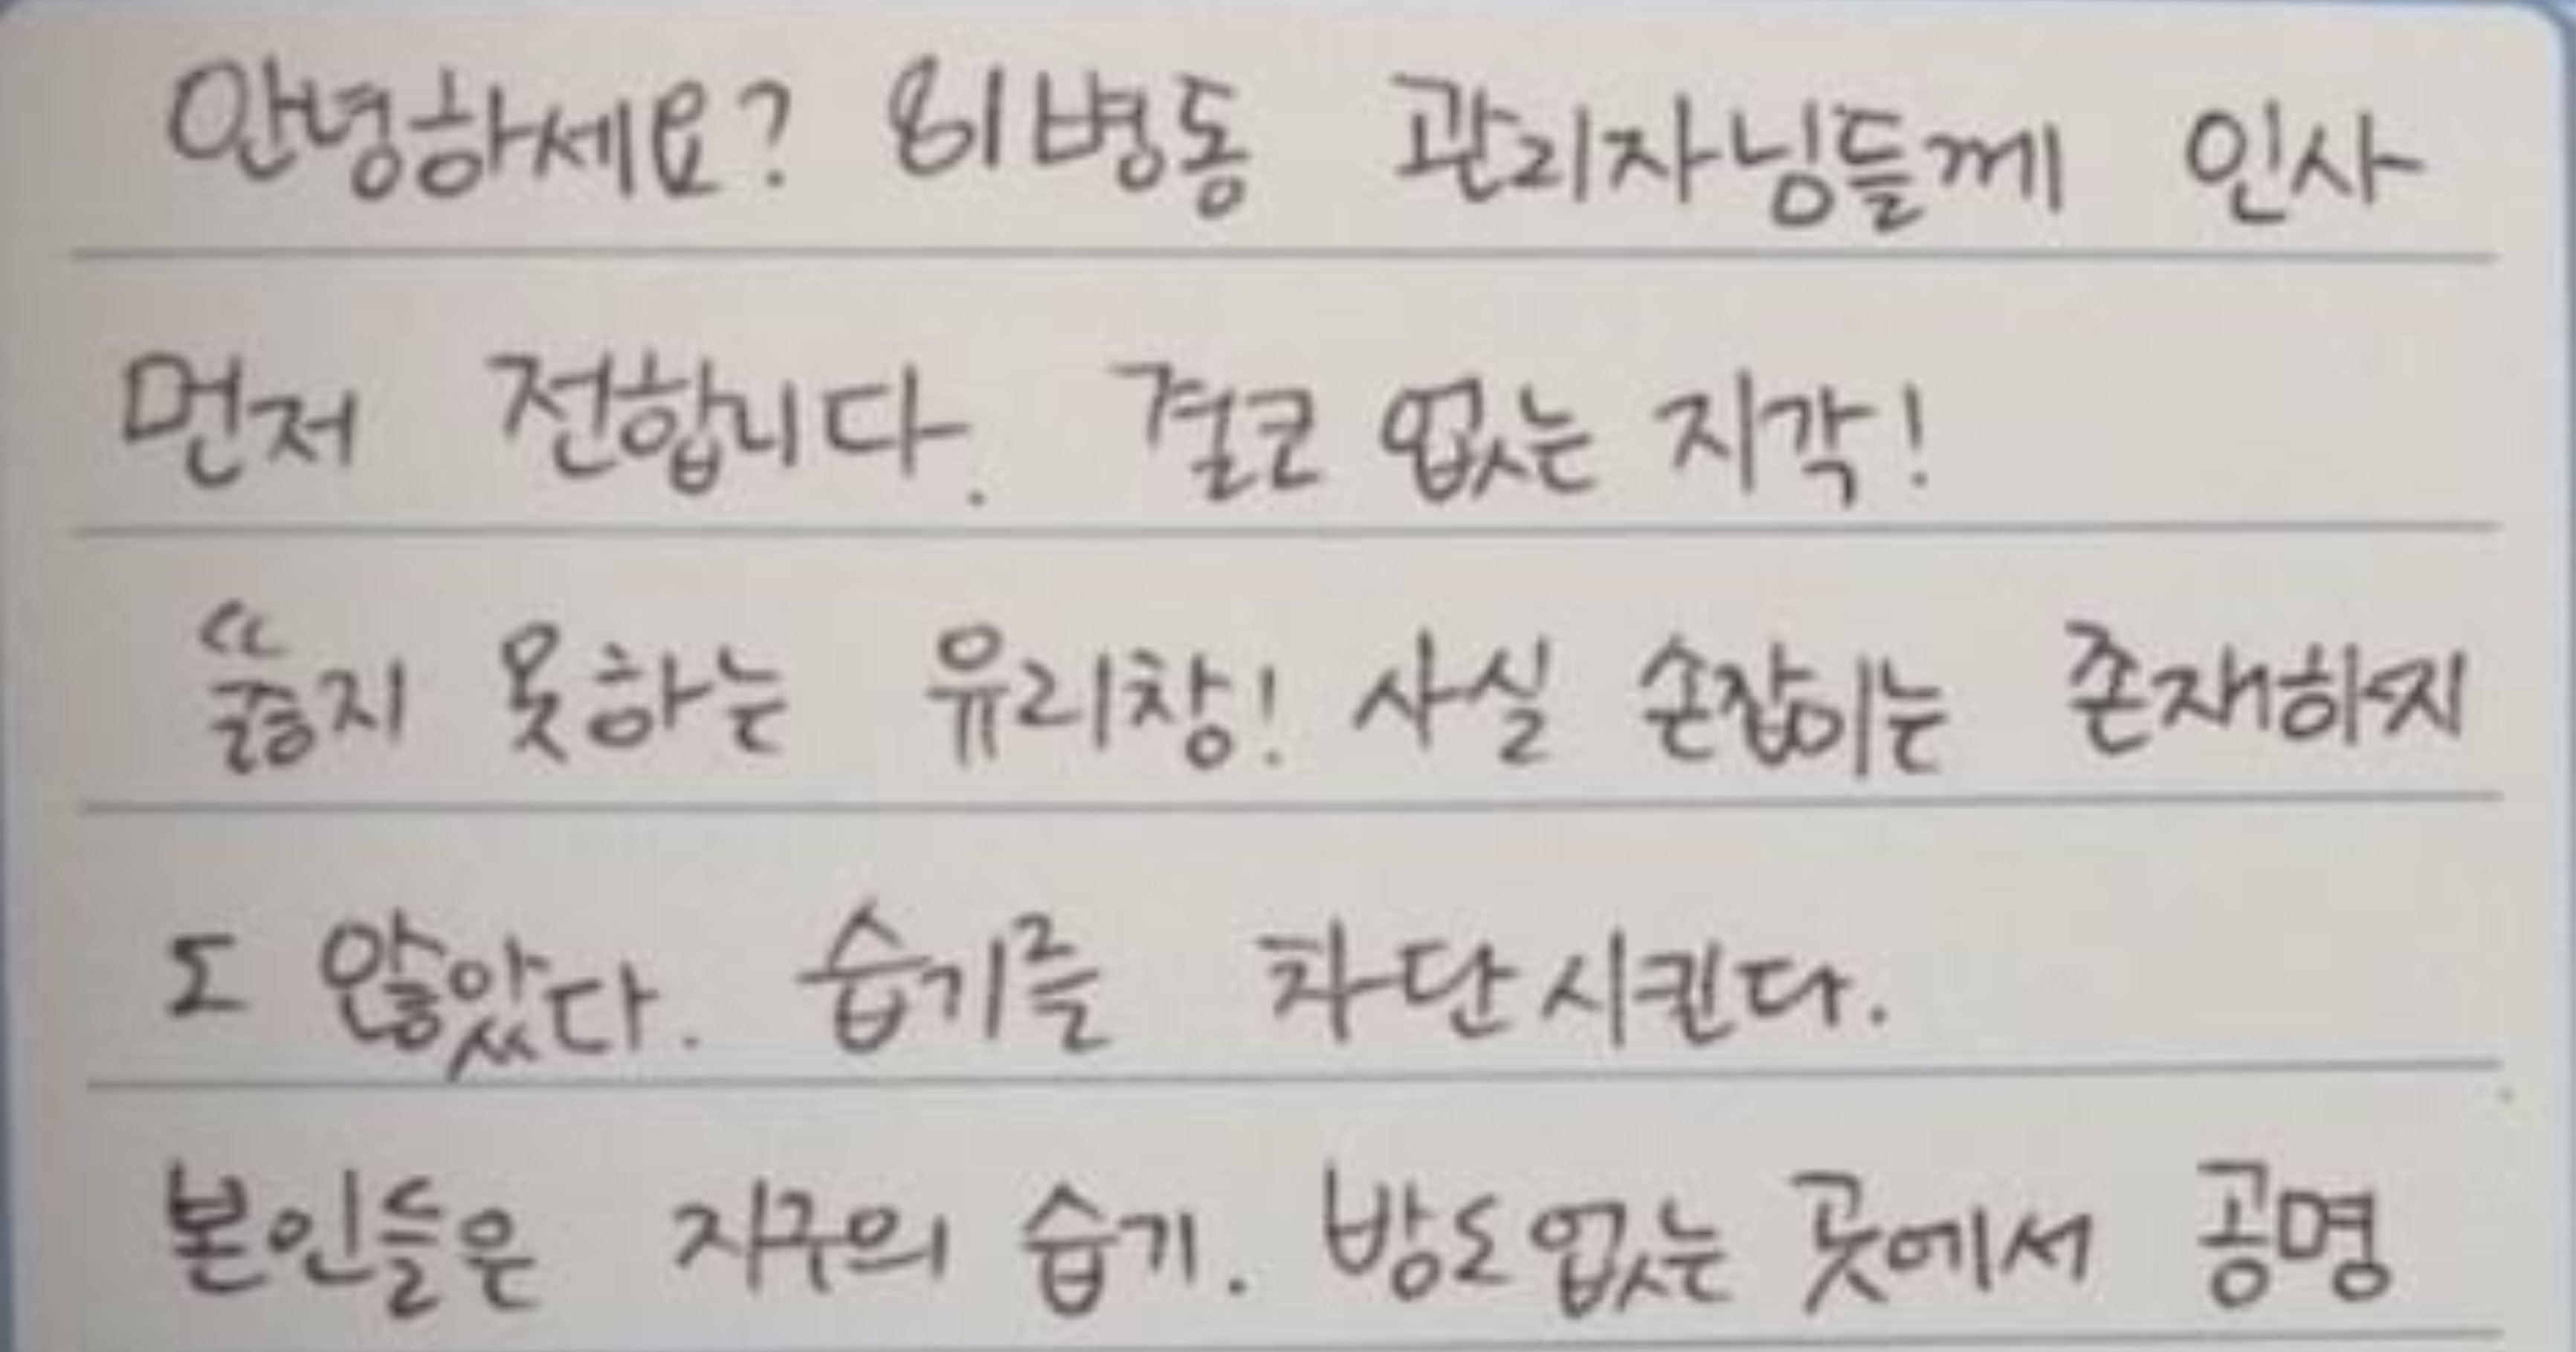 안녕하세요? 81병동 관리자님들께 인사
먼저 전합니다. 결코 없는 지각!
뚫지 못하는 유리창! 사실 손잡이는 존재하지
도 않았다. 습기를 차단시킨다.
본인들은 지구의 습기. 방도없는 곳에서 공명